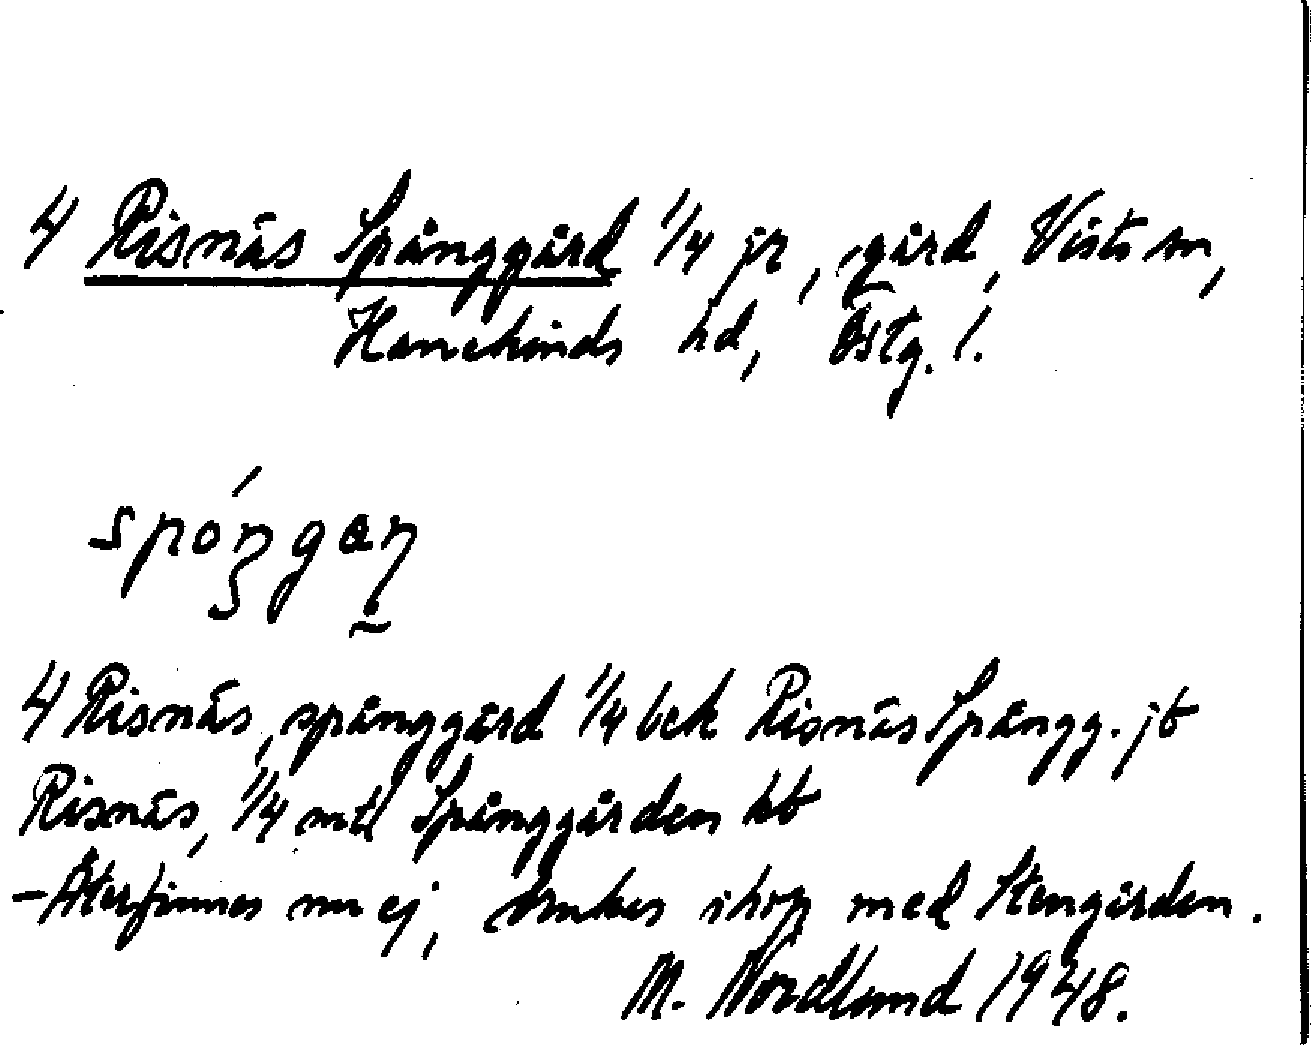 4 Risnäs Spånggård 1/4 jr, gård, Vists sn,
Hanekinds hd, Östg. l.
spóŋgaṇ
4 Risnäs, spånggård 1/4 bek Risnäs Spångg. jb
Risnäs, 1/4 mtl Spånggården kb
- Återfinnes nu ej, brukas ihop med Stengården.
M. Nordlund 1948.